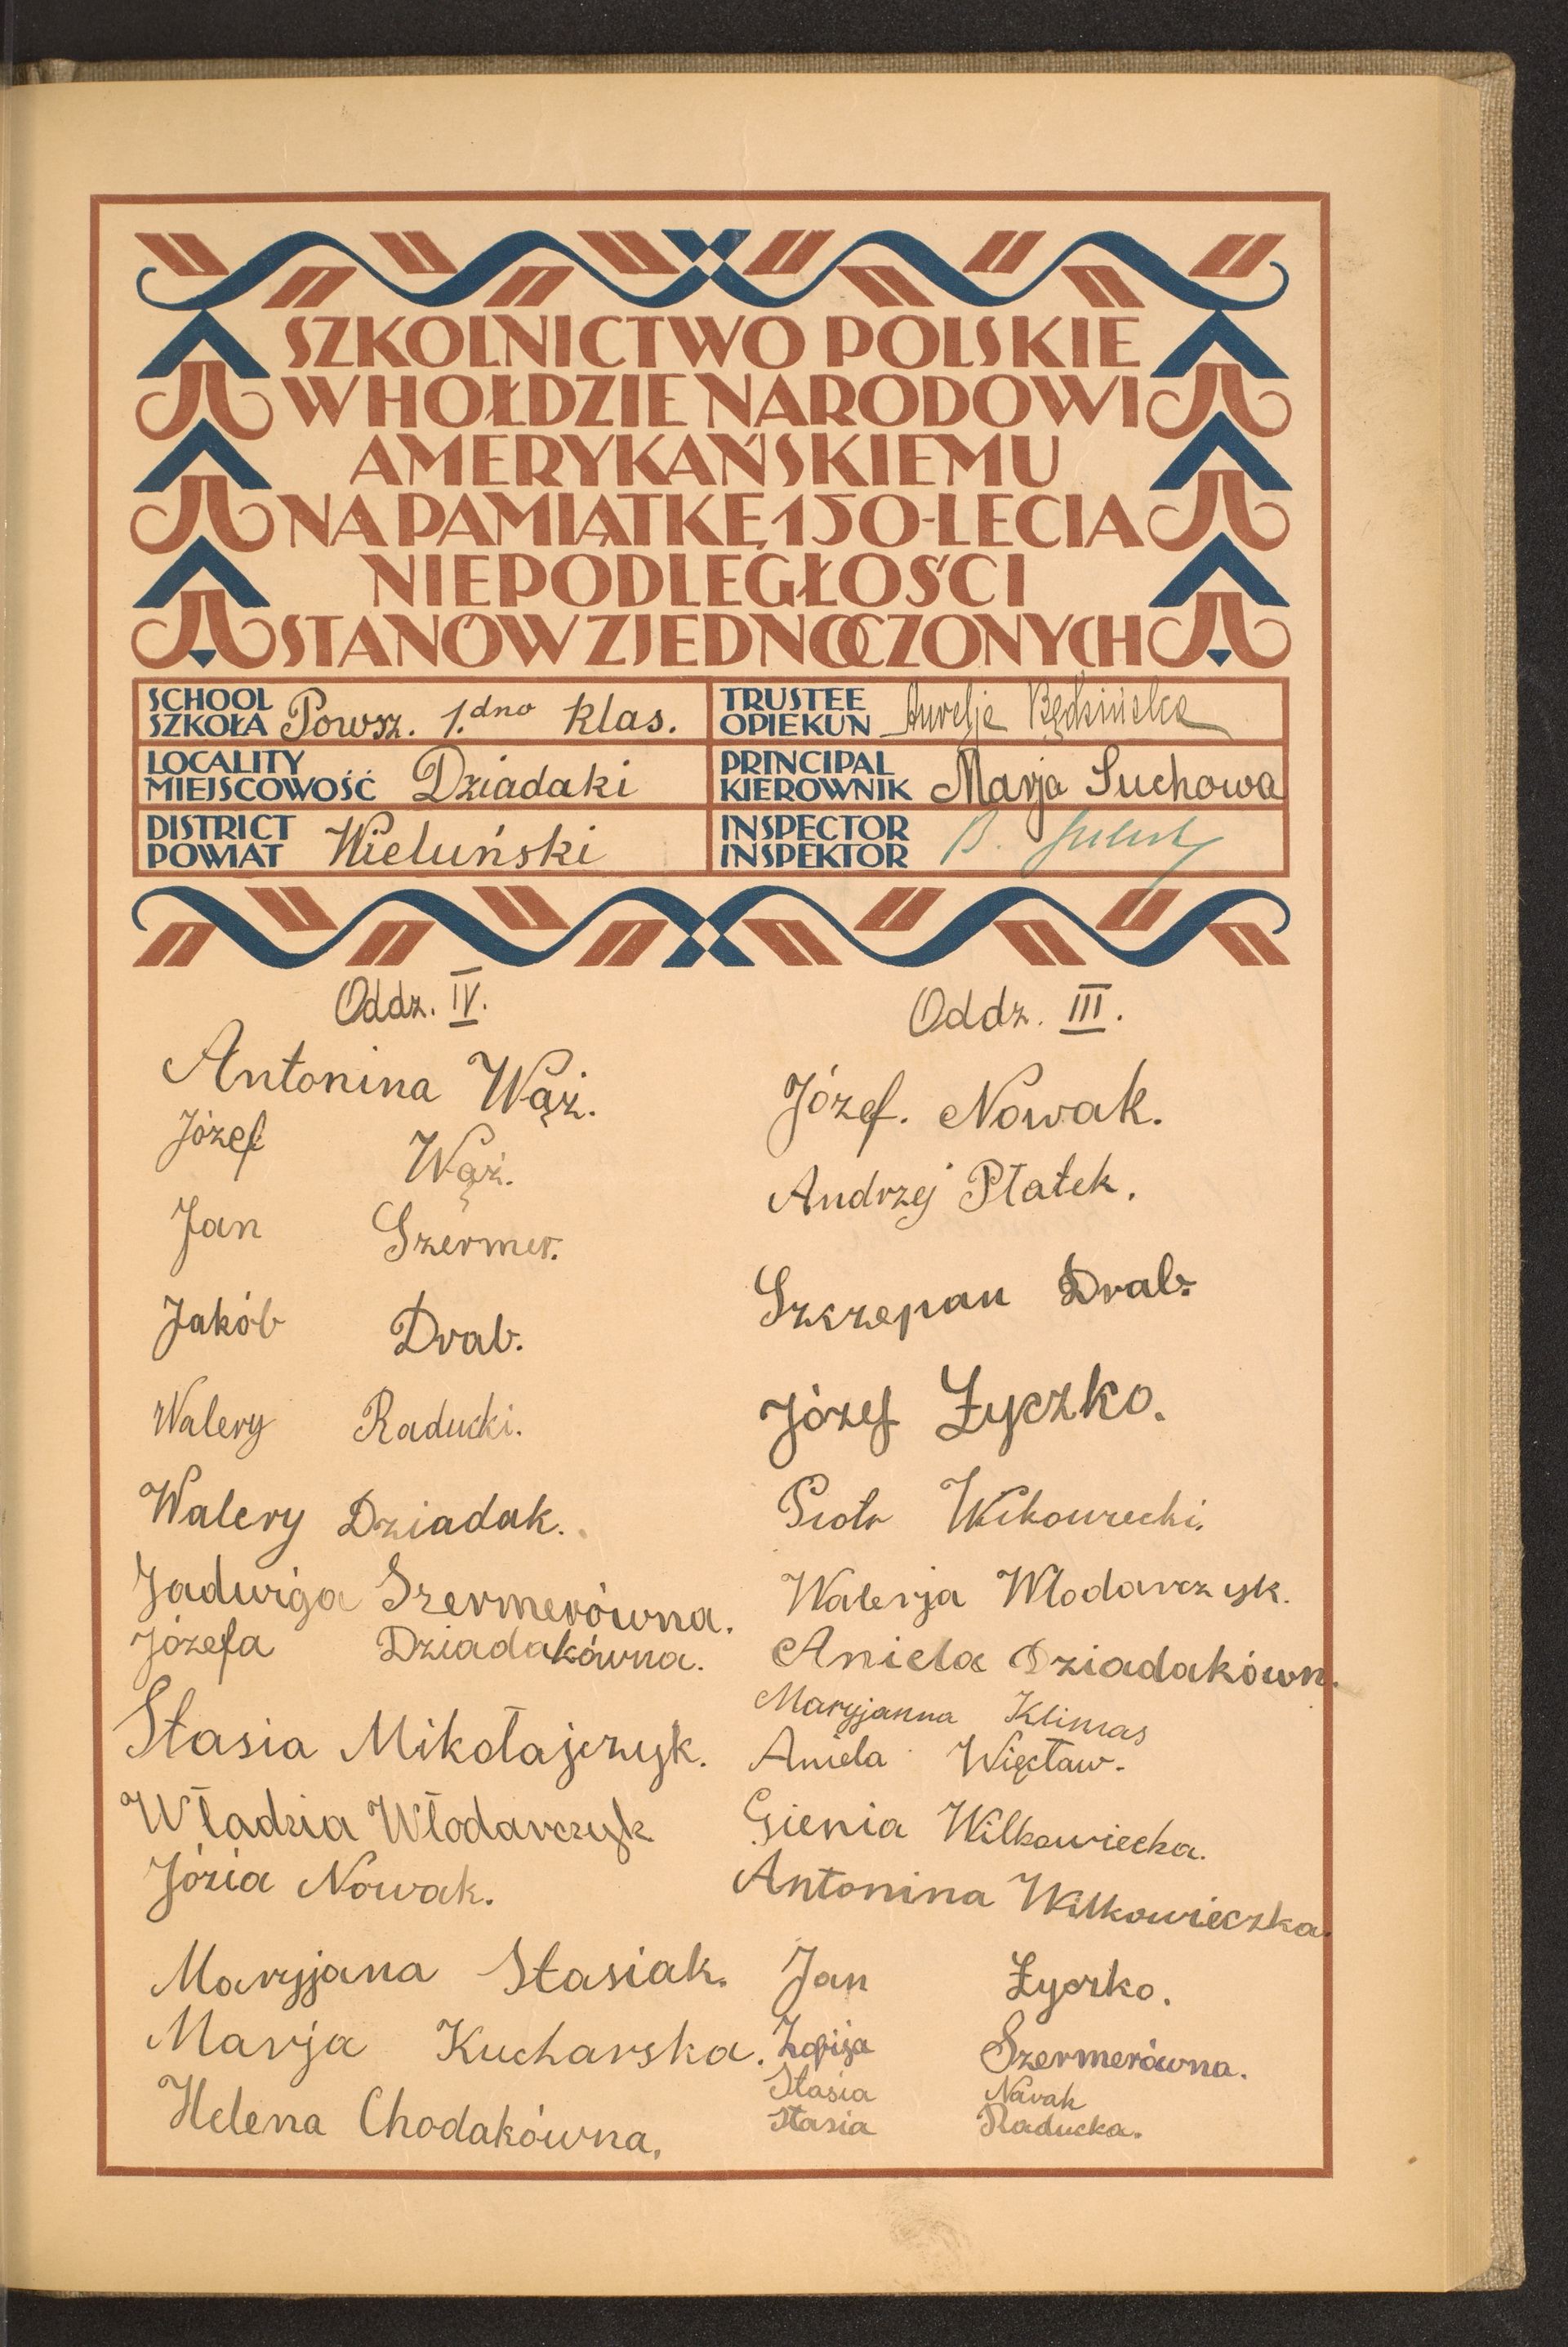 SZKOLNICTWO POLSKIE
W HOŁDZIE NARODOWI
AMERYKAŃSKIEMU
NA PAMIĄTKĘ 150-LECIA
NIEPODLEGŁOŚCI
STANÓW ZJEDNOCZONYCH
SCHOOL
SZKOŁA Powsz. 1.dno klas.
TRUSTEE
OPIEKUN Aurelja
LOCALITY
MIEJSCOWOŚĆ Dziadaki
PRINCIPAL
KIEROWNIK Marja Suchowa
DISTRICT
POWIAT Wieluński
INSPECTOR
INSPEKTOR B.
Oddz. IV.
Antonina Wąż.
Józef Wąż.
Jan Szermer.
Jakób Drab.
Walery Raducki.
Walery Dziadak.
Jadwiga Szermerówna.
Józefa Dziadakówna.
Stasia Mikołajczyk.
Władzia Włodarczyk
Józia Nowak.
Maryjana Stasiak.
Marja Kucharska.
Helena Chodakówna.
Oddz. III.
Józef. Nowak.
Andrzej Płatek.
Szczepan Drab.
Józef Życzko.
Piotr
Walerja Włodarczyk.
Aniela Dziadakówn.
Maryjanna Klimas
Aniela Więcław.
Gienia Wilkowiecka.
Antonina Wilkowieczka.
Jan Życzko.
Zofija Szermerówna.
Stasia Nawak
Stasia Raducka.